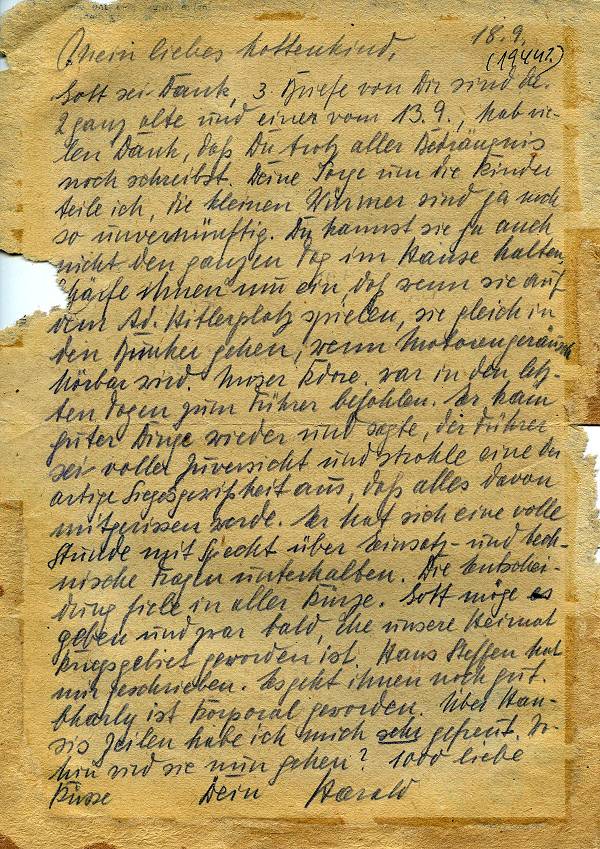 18.9.
(1944?)
Mein liebes Kottenkind,
Gott sei Dank, 3 Briefe von Dir sind da.
2 ganz alte und einer vom 13.9., hab vie-
len Dank, daß Du trotz aller Bedrängnis
noch schreibst. Deine Sorge um die Kinder
teile ich, die kleinen Würmer sind ja noch
so unvernünftig. Du kannst sie ja auch
nicht den ganzen Tag im Hause halten,
schärfe ihnen nur ein, daß wenn sie auf
dem Ad. Hitlerplatz spielen, sie gleich in
den Bunker gehen, wenn Motorengeräusch
hörbar wird. Unser Kdore. war in den letz-
ten Tagen zum Führer befohlen. Er kam
guter Dinge wieder und sagte, der Führer
sei voller Zuversicht und strahle eine der
artige Siegesgewißheit aus, daß alles davon
mitgerissen werde. Er hat sich eine volle
Stunde mit über Einsatz- und tech-
nische Fragen unterhalten. Die Entschei-
dung fiele in aller Kürze. Gott möge es
geben und zwar bald, ehe unsere Heimat
Kriegsgebiet geworden ist. Hans Steffen hat
mir geschrieben. Es geht ihnen noch gut.
Charly ist Korporal geworden. Über Han-
sis Zeilen habe ich mich sehr gefreut. Wo-
hin wird sie nun gehen? 1000 liebe
Küsse Dein Harald